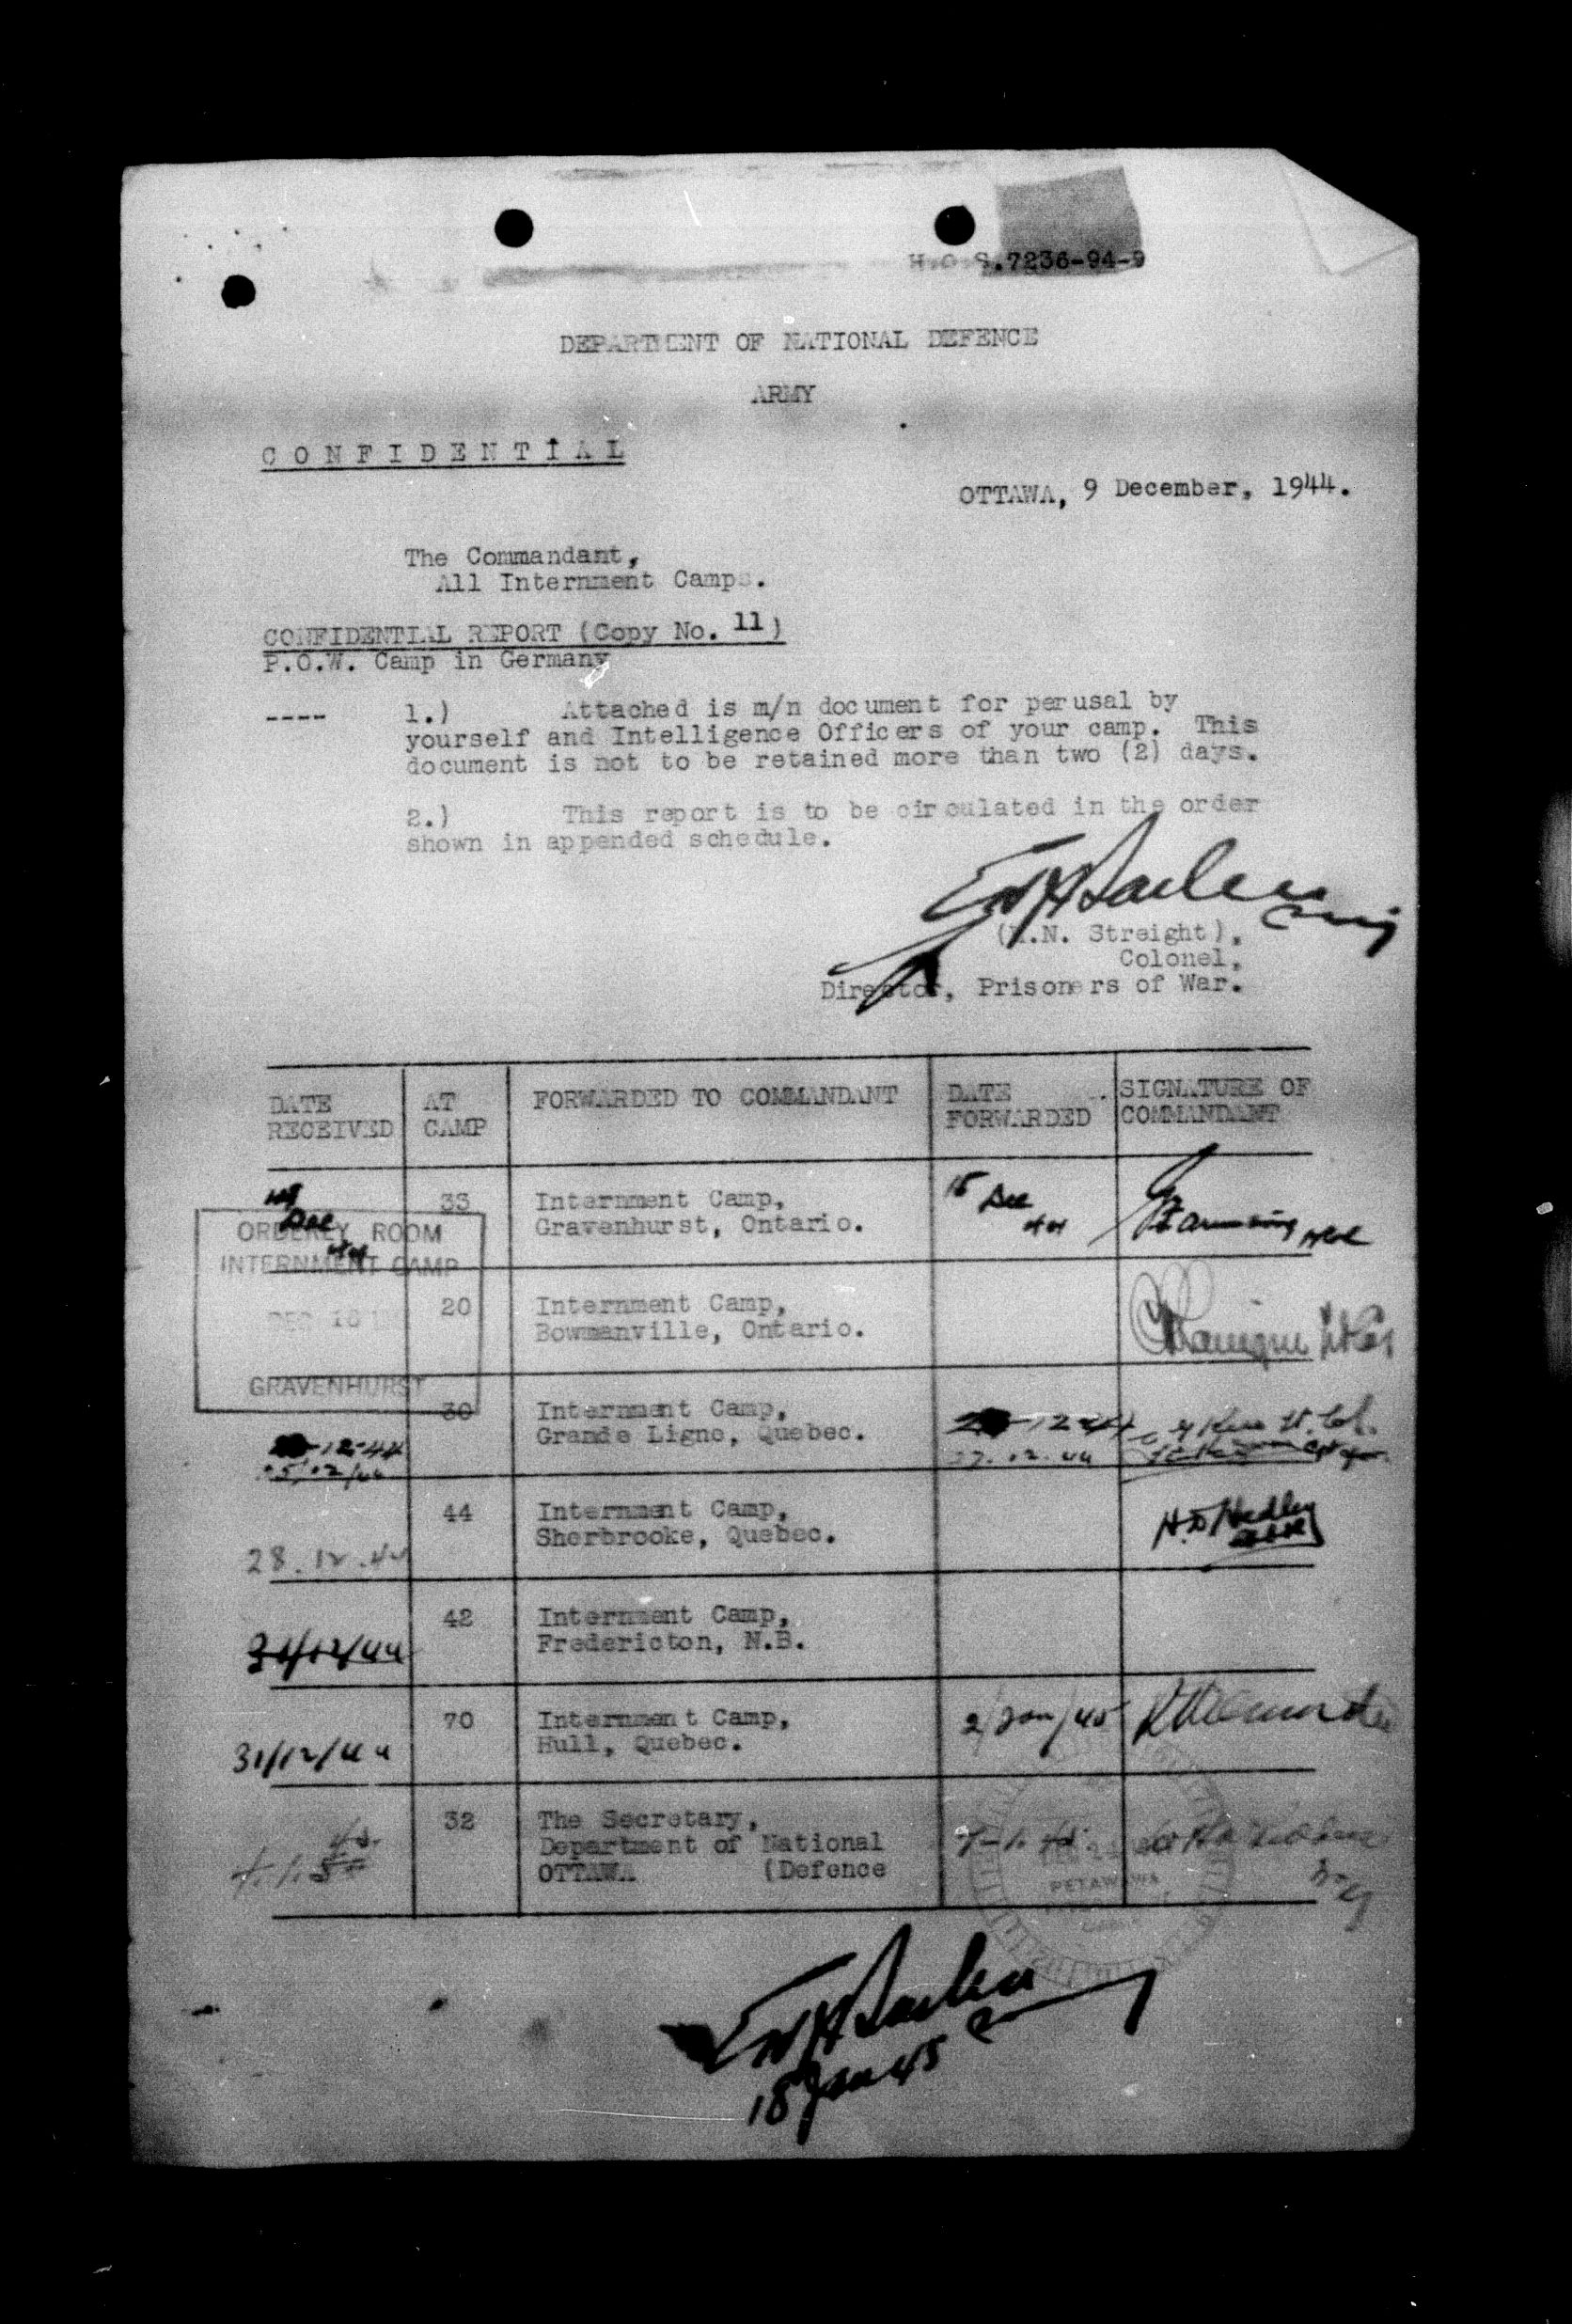 H.Q.S.7236-94-9
DEPARTMENT OF NATIONAL DEFENCE
ARMY
CONFIDENTIAL
OTTAWA, 9 December, 1944.
The Commandant,
All Internment Camps.
CONFIDENTIAL REPORT (Copy No. 11)
P.O.W. Camp in Germany
---- 1.) Attached is m/n document for perusal by
yourself and Intelligence Officers of your camp. This
document is not to be retained more than two (2) days.
2.) This report is to be circulated in the order
shown in appended schedule.
(H.N. Streight),
Colonel,
Director, Prisoners of War.
DATE RECEIVED AT CAMP FORWARDED TO COMMANDANT DATE FORWARDED SIGNATURE OF COMMANDANT
Dec 44 33 Internment Camp, 15 Dec 44
Gravenhurst, Ontario.
ORDERLY ROOM
INTERNMENT CAMP
DEC 18
GRAVENHURST
20 Internment Camp,
Bowmanville, Ontario.
30 Internment Camp,
Grande Ligne, Quebec.
-12-44 -12-44
27.12.44
44 Internment Camp,
Sherbrooke, Quebec.
28.12.44 H.D. Hedley
42 Internment Camp,
Fredericton, N.B.
31/12/44
70 Internment Camp, 2/Jan/45
Hull, Quebec.
31/12/44
32 The Secretary,
Department of National
OTTAWA (Defence
PETAWAWA
18 Jan 45